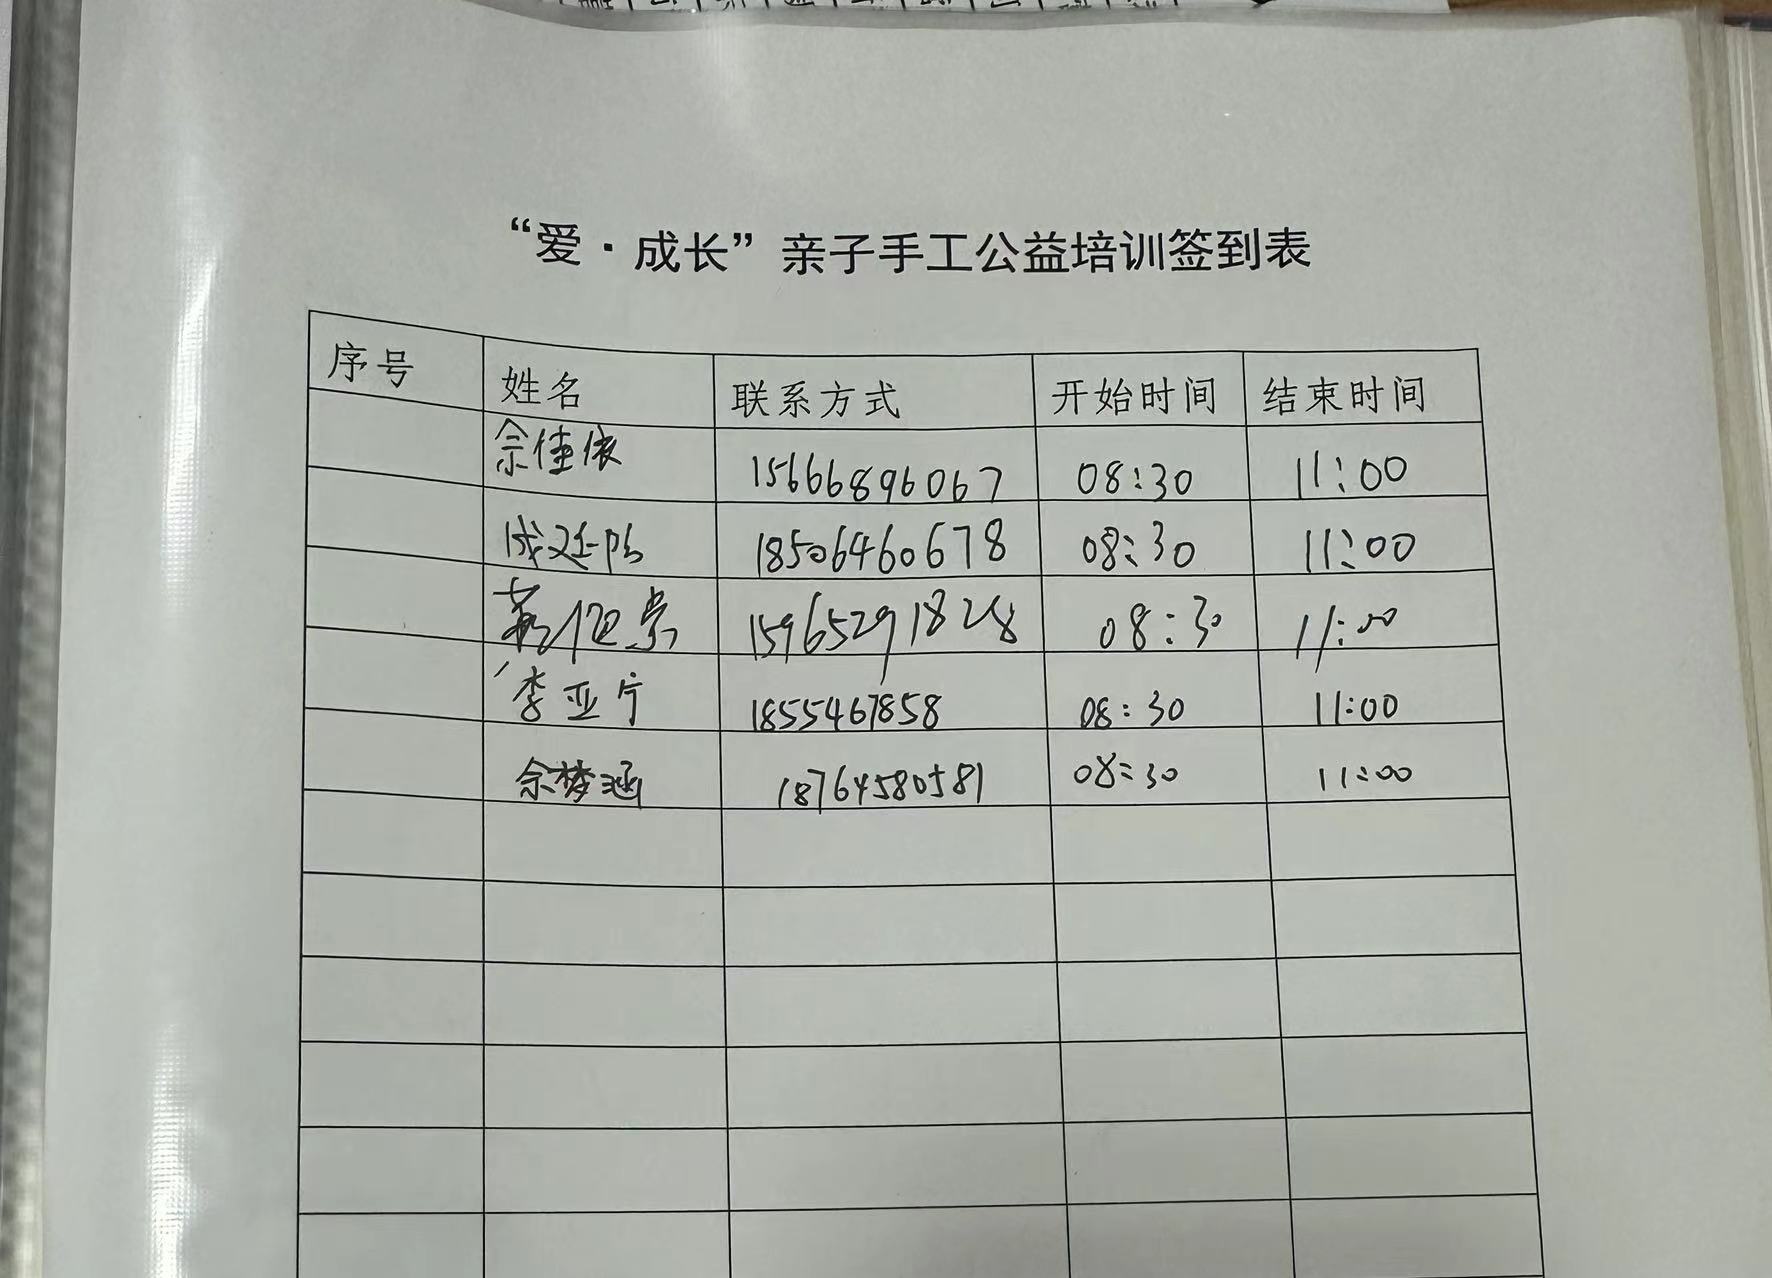 “爱·成长”亲子手工公益培训签到表
序号 姓名 联系方式 开始时间 结束时间
佘佳依 15666896067 08:30 11:00
成延 18506460678 08:30 11:00
15965291828 08:30 11:00
李亚宁 1855467858 08:30 11:00
佘梦涵 18764580581 08:30 11:00